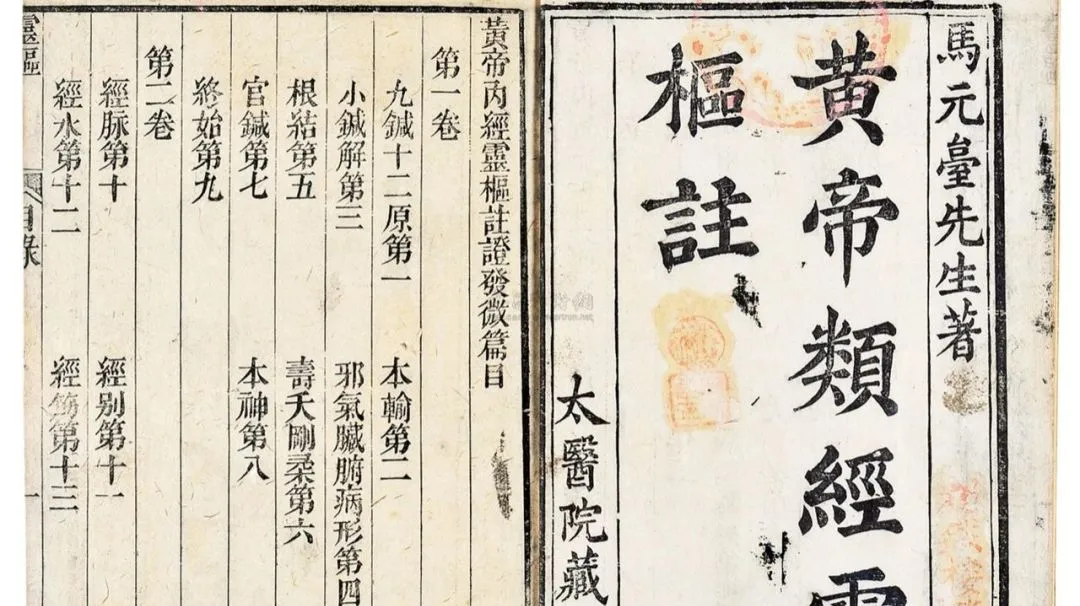 馬元臺先生著
黃帝類經靈
樞註
太醫院藏
黃帝內經靈樞註證發微篇目
第一卷
九鍼十二原第一 本輸第二
小鍼解第三 邪氣臟腑病形第四
根結第五 壽夭剛柔第六
官鍼第七 本神第八
終始第九
第二卷
經脉第十 經别第十一
經水第十二 經筋第十三
靈樞
目錄
一